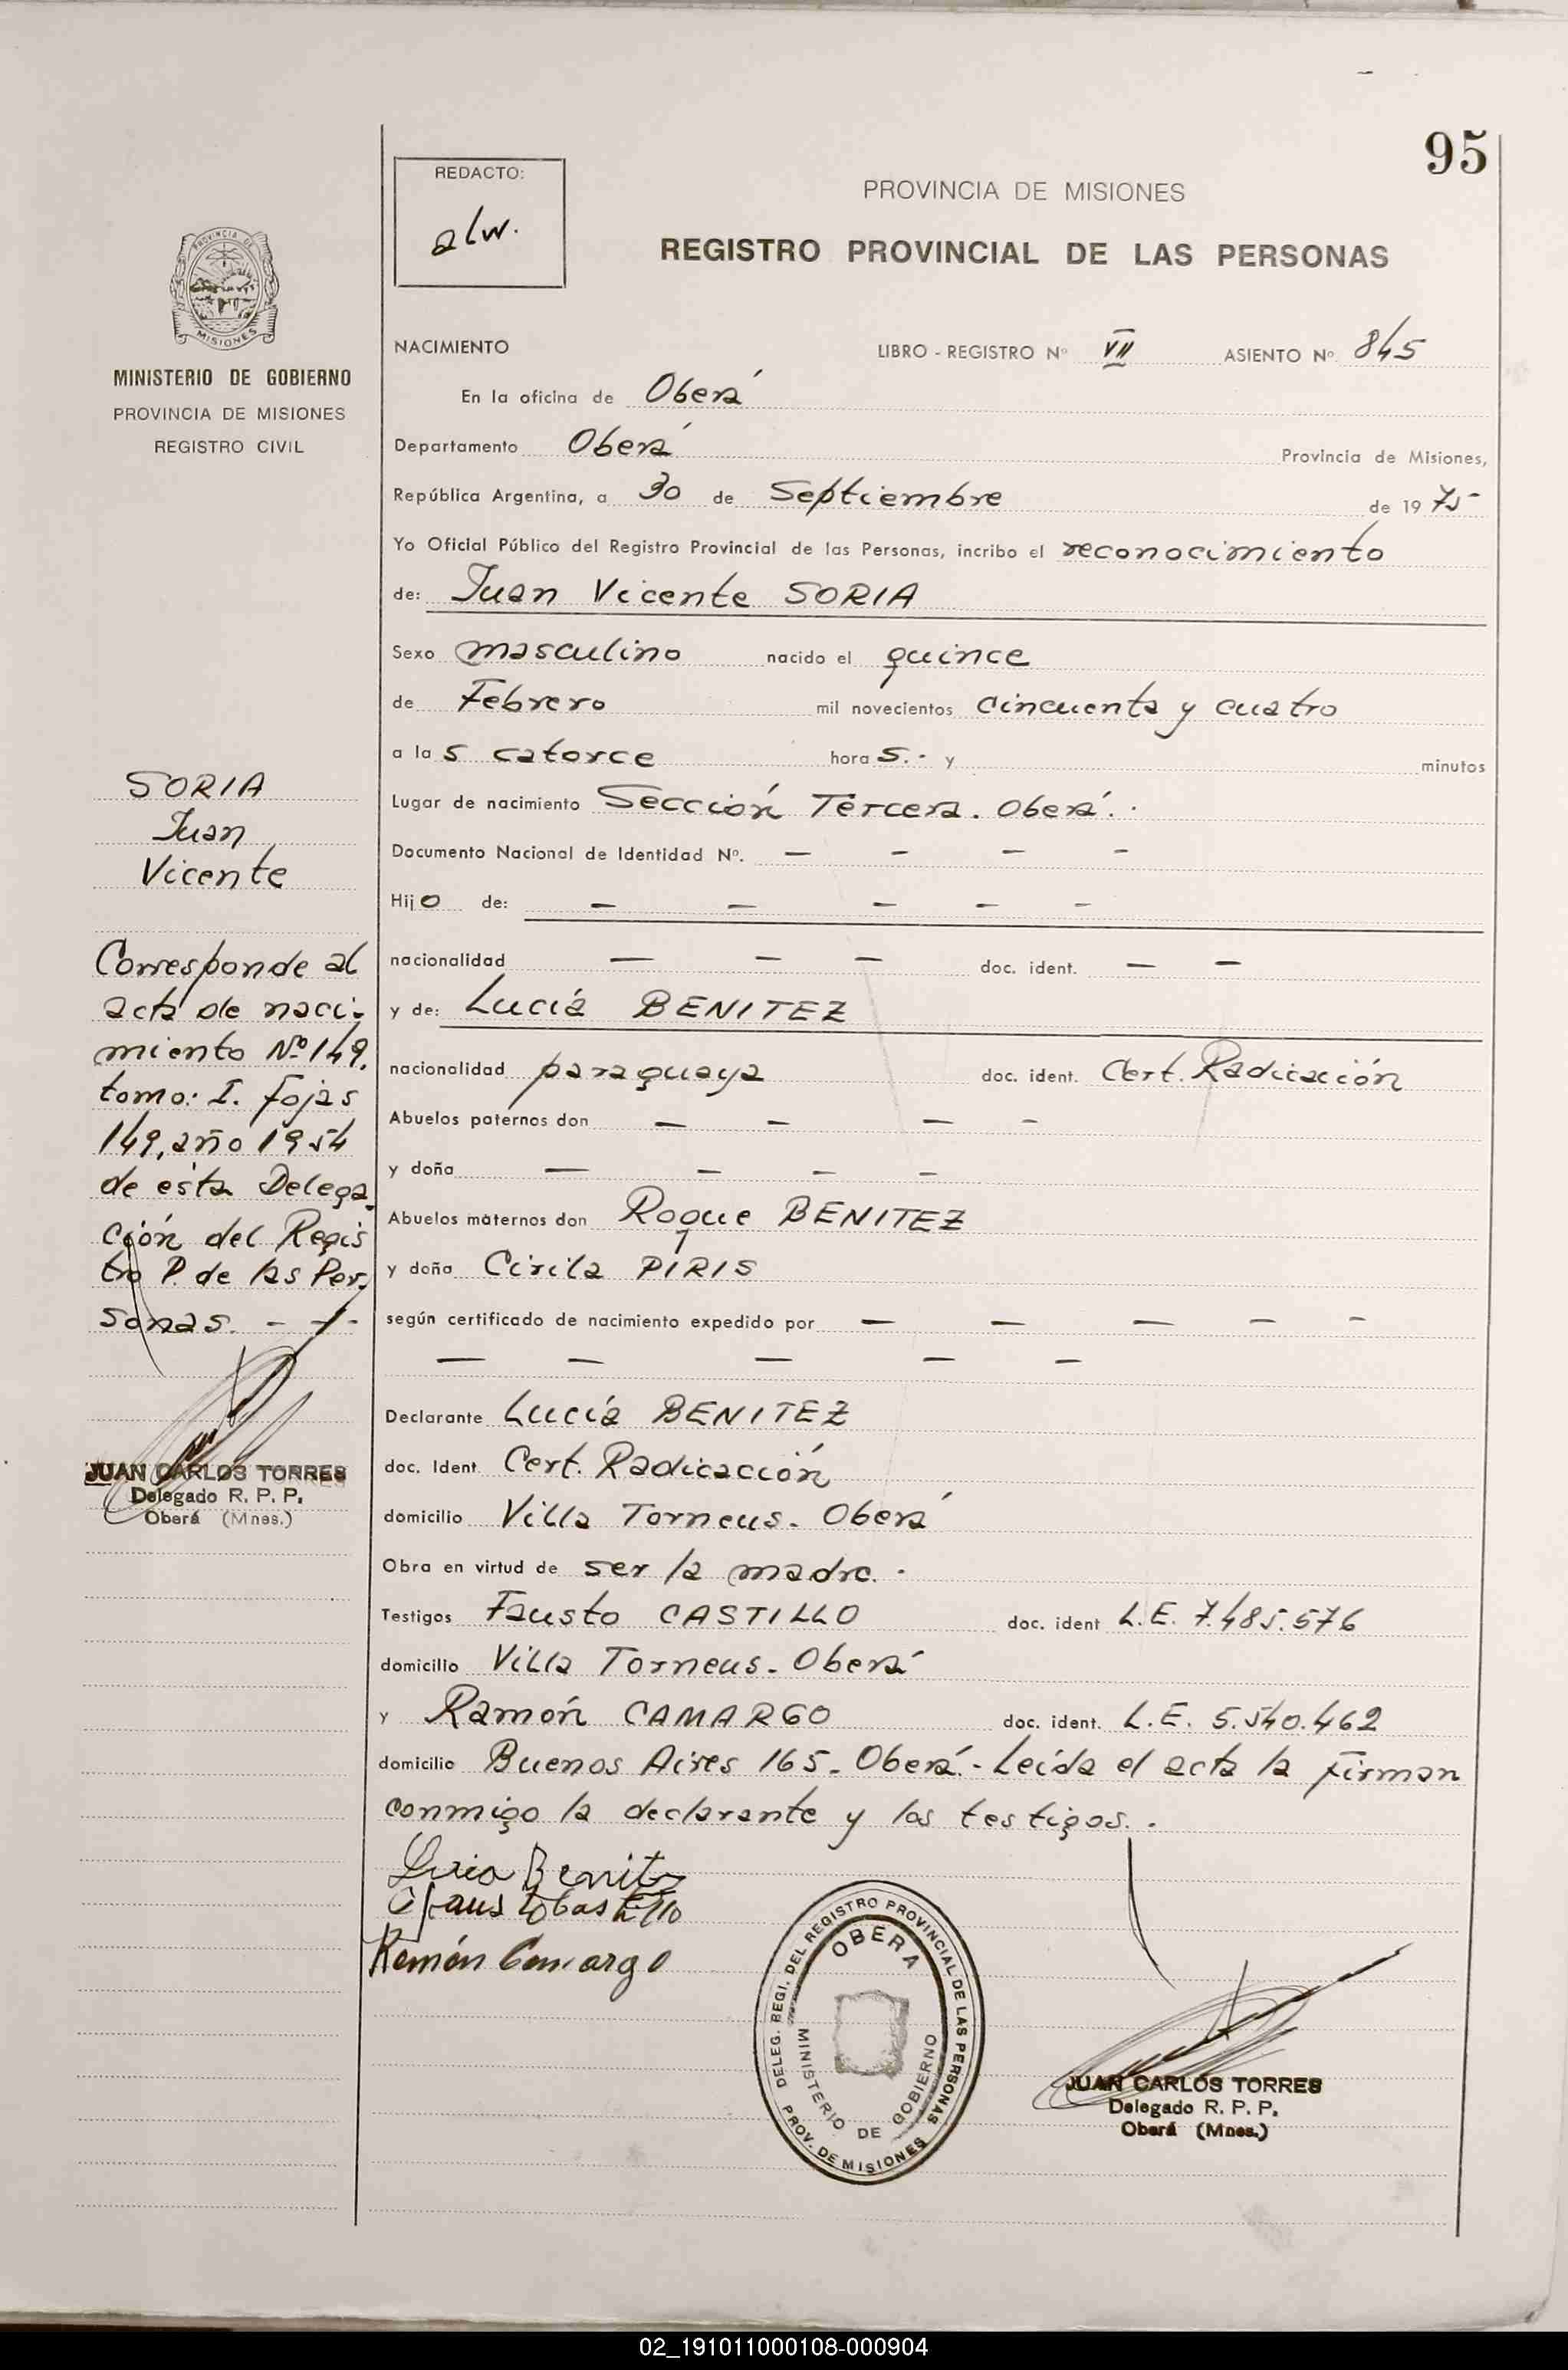 95
REDACTO:
alw.
PROVINCIA DE MISIONES
REGISTRO PROVINCIAL DE LAS PERSONAS
PROVINCIA DE
MISIONES
MINISTERIO DE GOBIERNO
PROVINCIA DE MISIONES
REGISTRO CIVIL
NACIMIENTO LIBRO - REGISTRO Nº VII ASIENTO Nº 845
En la oficina de Oberá
Departamento Oberá Provincia de Misiones,
República Argentina, a 30 de Septiembre de 1975
Yo Oficial Público del Registro Provincial de las Personas, incribo el reconocimiento
de: Juan Vicente SORIA
Sexo masculino nacido el quince
de Febrero mil novecientos cincuenta y cuatro
a la s catorce hora s.- y minutos
Lugar de nacimiento Sección Tercera. Oberá.-
Documento Nacional de Identidad Nº. — — — —
Hijo de: — — — — —
nacionalidad — — — doc. ident. — —
y de: Lucía BENITEZ
nacionalidad paraguaya doc. ident. Cert. Radicación
Abuelos paternos don — — — —
y doña — — — —
Abuelos maternos don Roque BENITEZ
y doña Cirila PIRIS
según certificado de nacimiento expedido por — — — — —
— — — — —
Declarante Lucía BENITEZ
doc. Ident. Cert. Radicación
domicilio Villa Torneus - Oberá
Obra en virtud de ser la madre.-
Testigos Fausto CASTILLO doc. ident L.E. 7.485.576
domicilio Villa Torneus - Oberá
y Ramón CAMARGO doc. ident. L.E. 5.540.462
domicilio Buenos Aires 165 - Oberá.- Leída el acta la firman
conmigo la declarante y los testigos.-
SORIA
Juan
Vicente
Corresponde al
acta de naci-
miento Nº 149.
tomo: I. fojas
149, año 1954
de esta Delega-
ción del Regis
tro P. de las Per-
sonas. - -
JUAN CARLOS TORRES
Delegado R. P. P.
Oberá (Mnes.)
Benitz
Ramón Camargo
DELEG. REGI. DEL REGISTRO PROVINCIAL DE LAS PERSONAS
OBERA
MINISTERIO DE GOBIERNO
PROV. DE MISIONES
JUAN CARLOS TORRES
Delegado R. P. P.
Oberá (Mnes.)
02_191011000108-000904